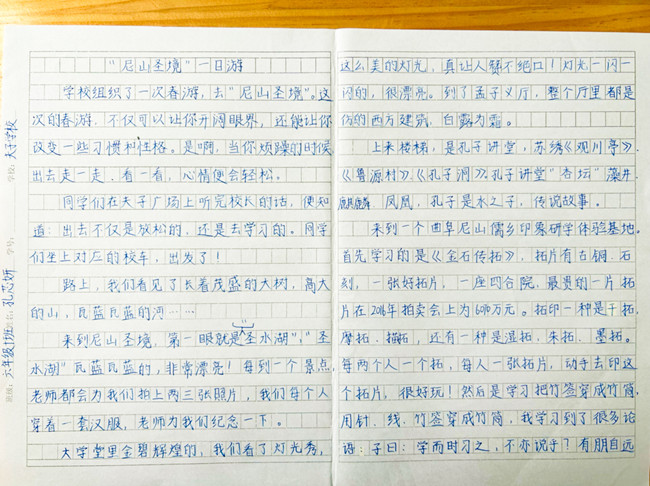 “尼山圣境”一日游
学校组织了一次春游，去“尼山圣境”。这
次的春游，不仅可以让你开阔眼界，还能让你
改变一些习惯和性格。是啊，当你烦躁的时候
出去走一走、看一看，心情便会轻松。
同学们在夫子广场上听完校长的话，便知
道：出去不仅是放松的，还是去学习的。同学
们坐上对应的校车，出发了！
路上，我们看见了长着茂盛的大树，高大
的山，瓦蓝瓦蓝的河……
来到尼山圣境，第一眼就是“圣水湖”，“圣
水湖”瓦蓝瓦蓝的，非常漂亮！每到一个景点，
老师都会为我们拍上两三张照片，我们每个人
穿着一套汉服，老师为我们纪念一下。
大学堂里金碧辉煌的，我们看了灯光秀，
学校：夫子学校
学号：
姓名：孔芯妍
班级：六年级1班
这么美的灯光，真让人赞不绝口！灯光一闪一
闪的，很漂亮。到了孟子义厅，整个厅里都是
仿的西方建筑，白露为霜。
上来楼梯，是孔子讲堂，苏绣《观川亭》、
《鲁源村》、《孔子洞》，孔子讲堂“杏坛”藻井、
麒麟、凤凰，孔子是水之子，传说故事。
来到一个曲阜尼山儒乡印象研学体验基地。
首先学习的是《金石传拓》，拓片有古铜、石
刻，一张好拓片，一座四合院，最贵的一片拓
片在2016年拍卖会上为6090万元。拓印一种是干拓、
摩拓、描拓，还有一种是湿拓、朱拓、墨拓。
每两个人一个拓，每人一张拓片，动手去印这
个拓片，很好玩！然后是学习把竹签穿成竹简，
用针、线、竹签穿成竹简，我学习到了很多论
语：子曰：学而时习之，不亦说乎？有朋自远